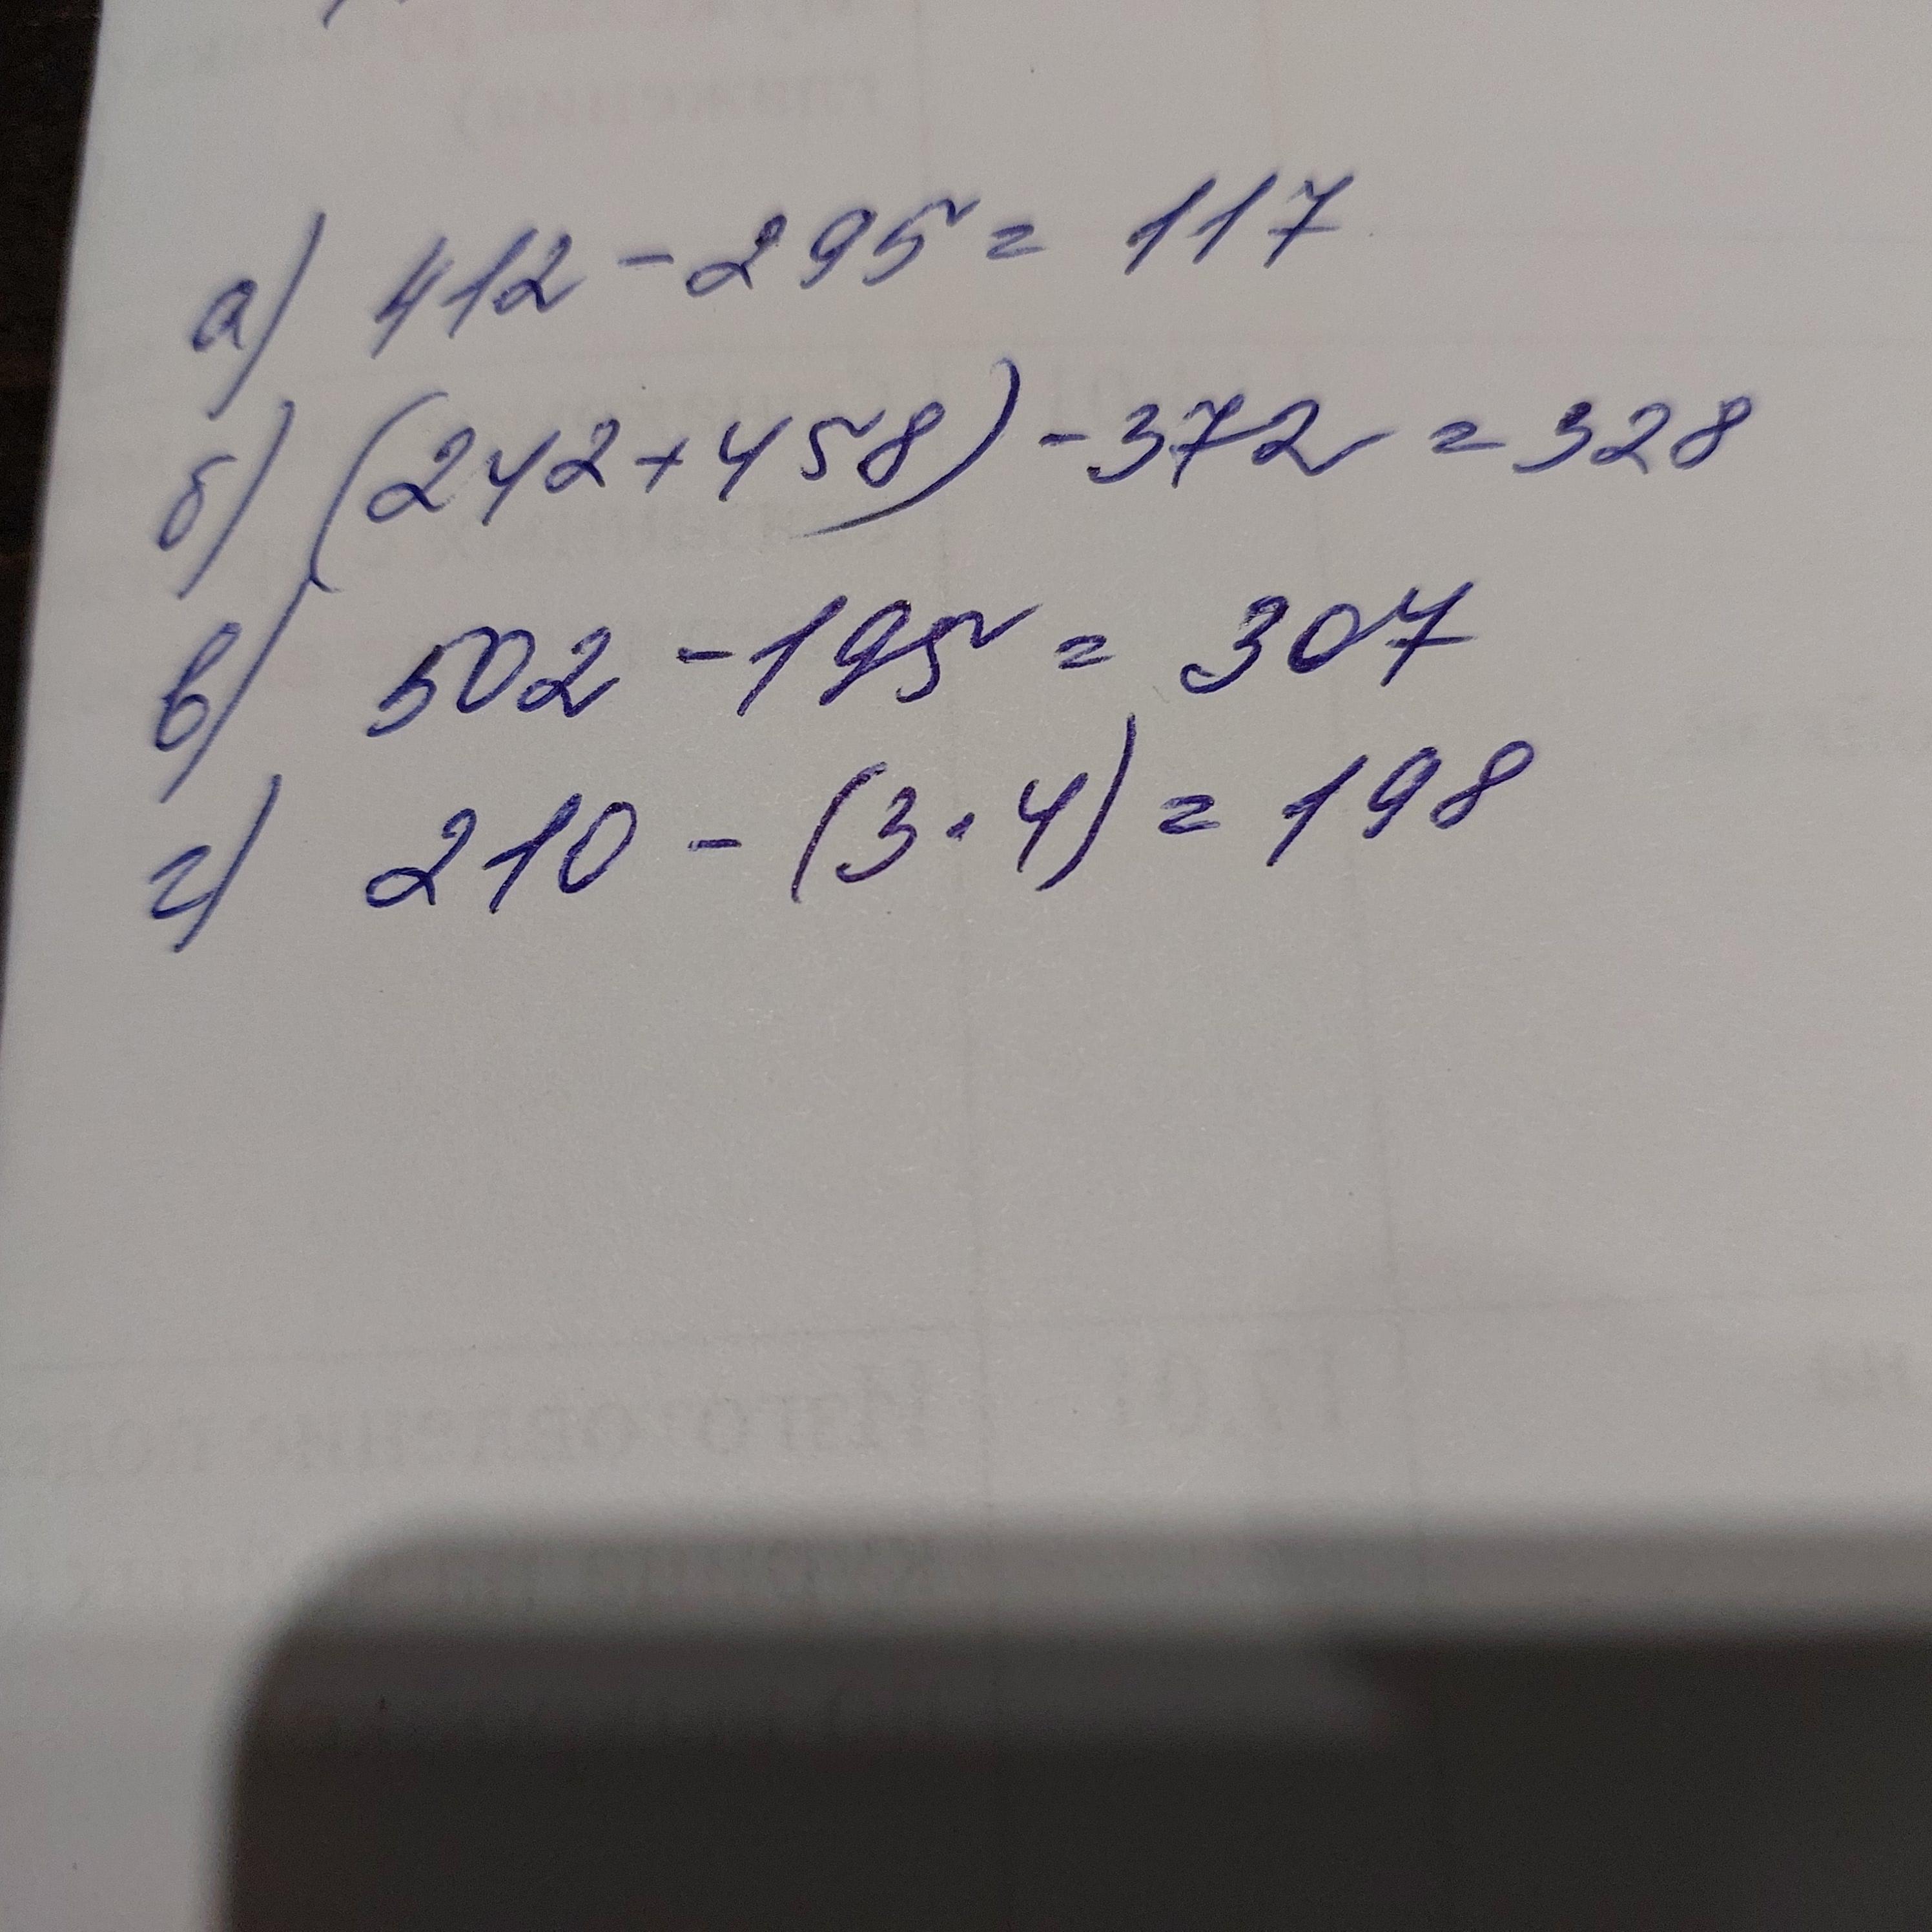 а) 412 - 295 = 117
б) (242 + 458) - 372 = 328
в) 502 - 195 = 307
г) 210 - (3 · 4) = 198